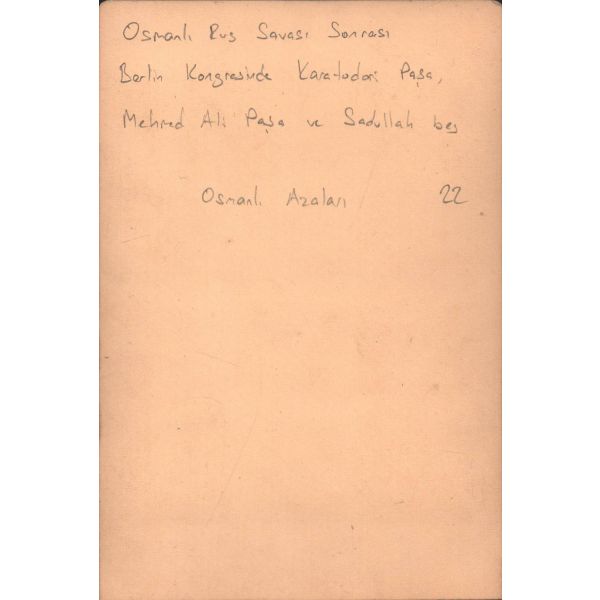 Osmanlı Rus Savası Sonrası
Berlin Kongresinde Karatodori Paşa,
Mehmed Ali Paşa ve Sadullah bey
Osmanlı Azaları 22